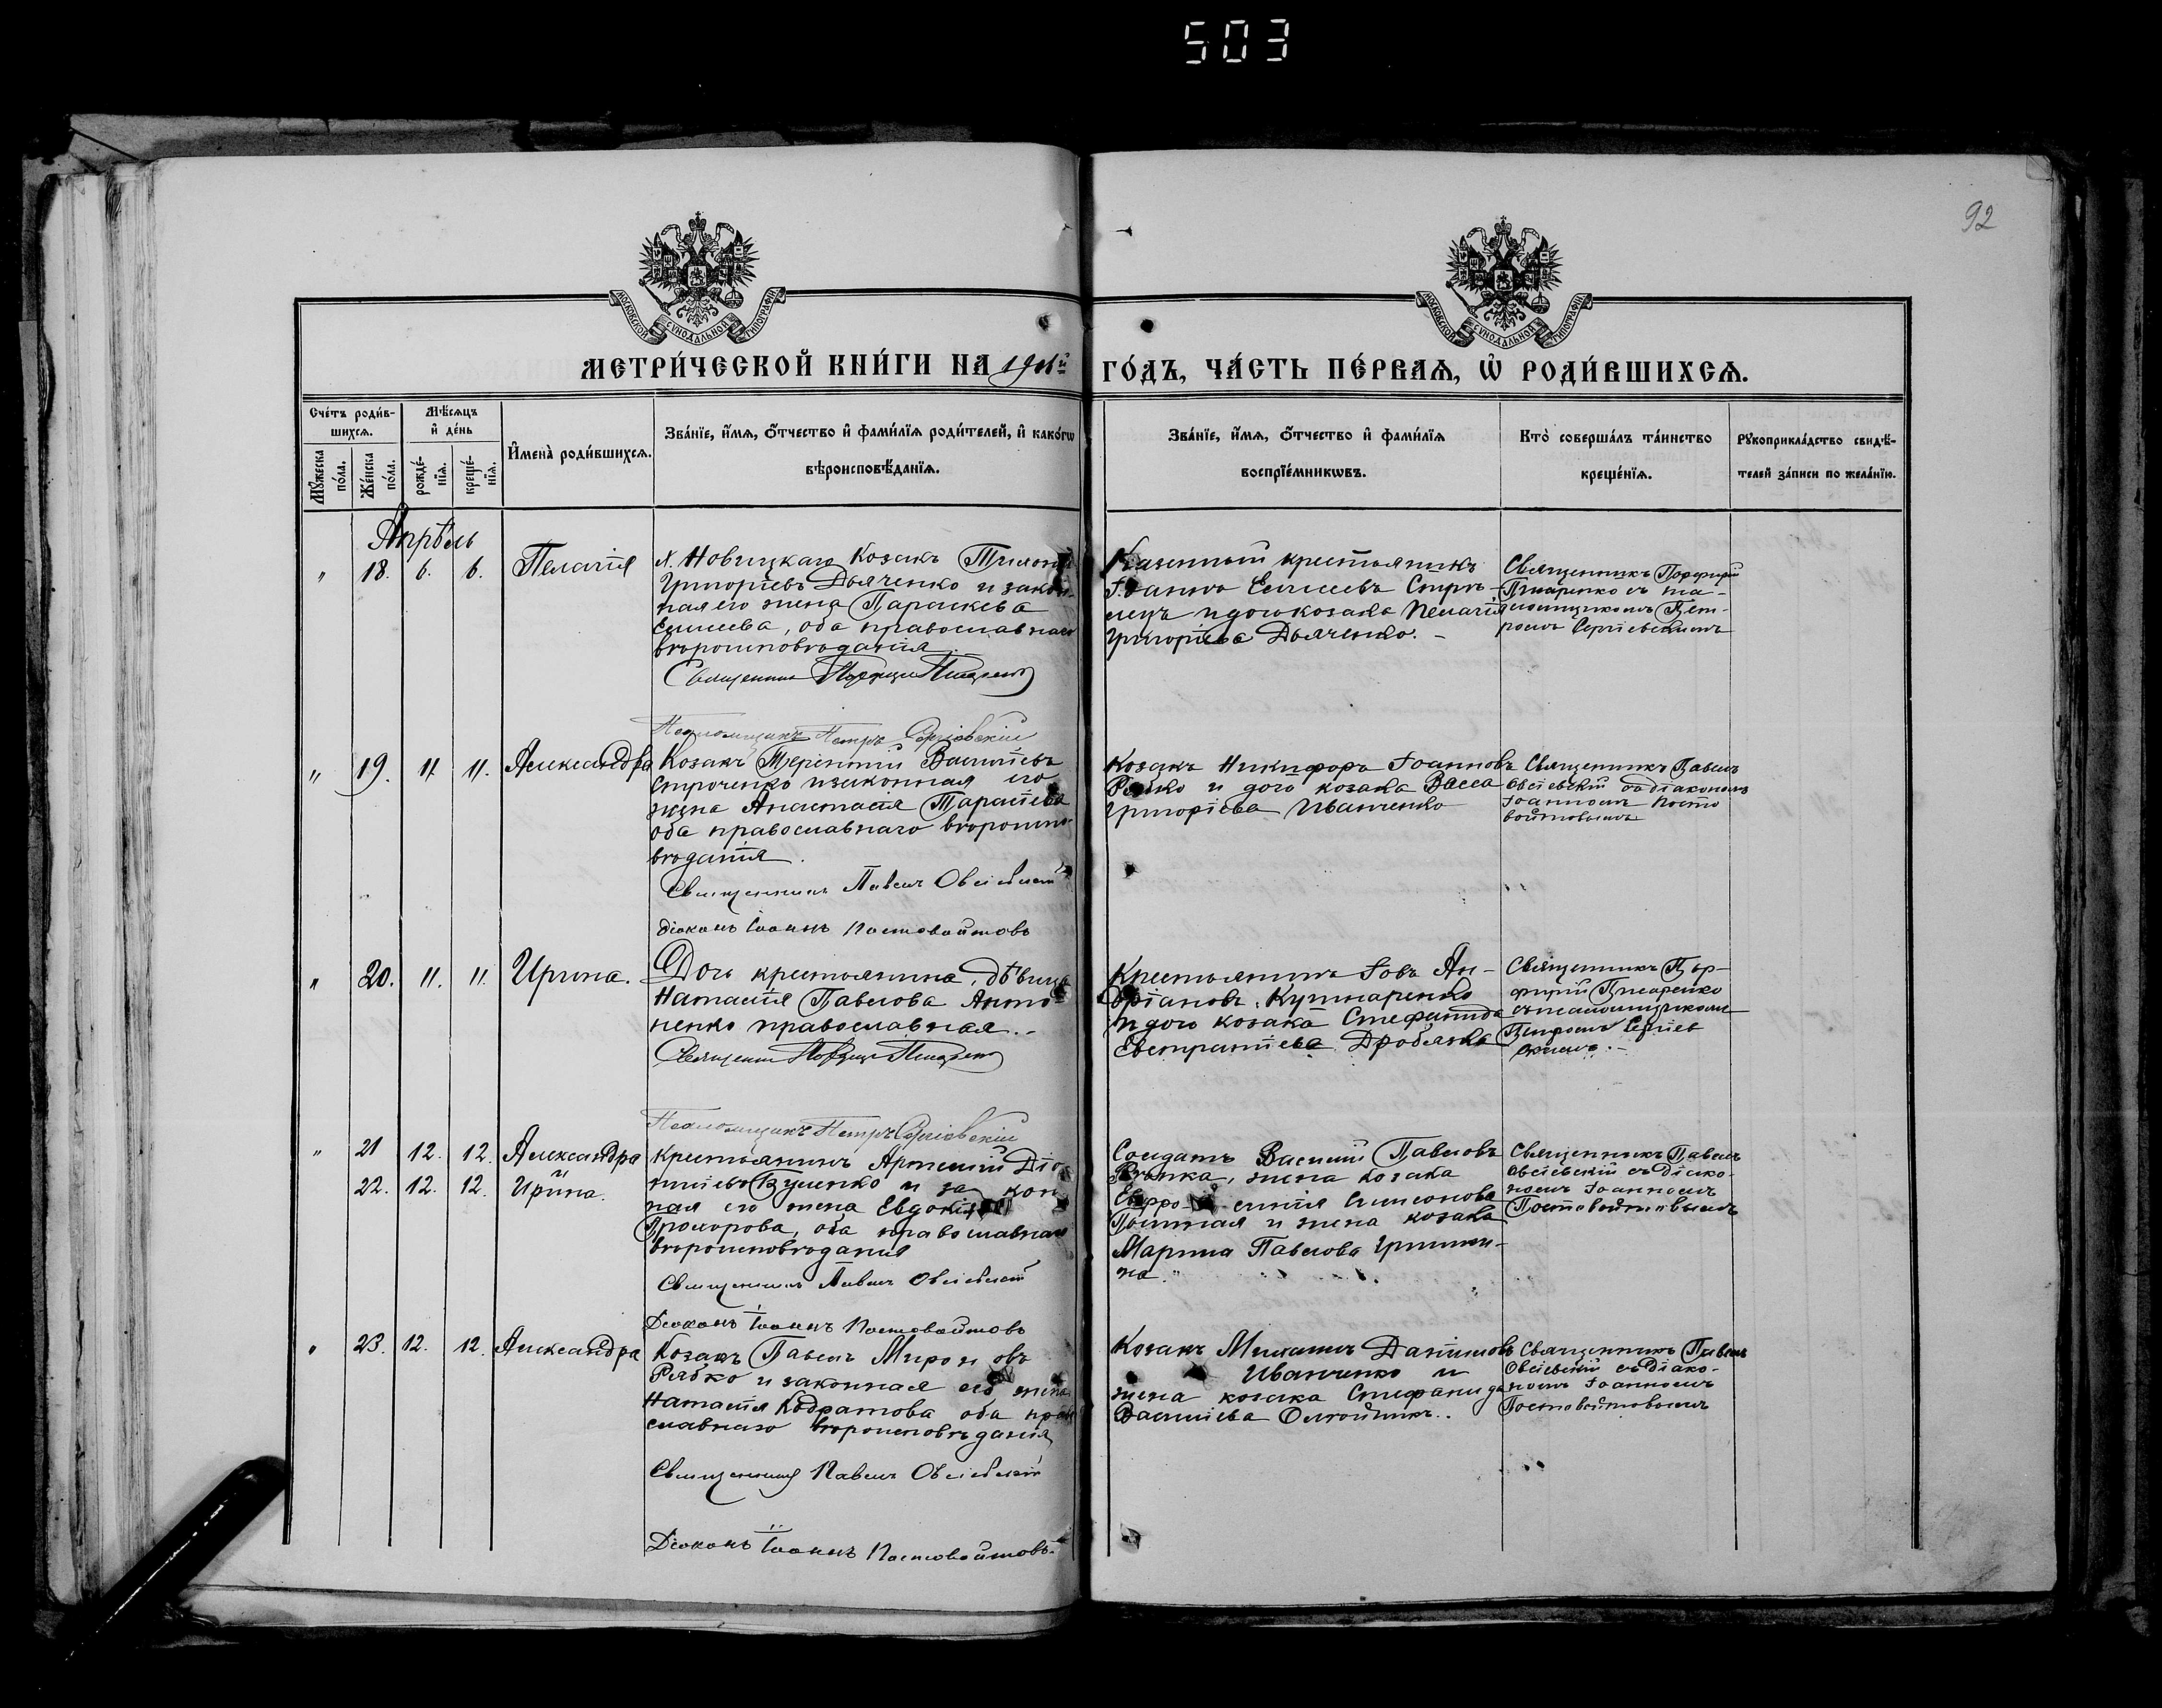 503
92
МОСКОВСКОЙ СѴНОДАЛЬНОЙ ТИПОГРАФІИ
МОСКОВСКОЙ СѴНОДАЛЬНОЙ ТИПОГРАФІИ
МЕТРИ́ЧЕСКОЙ КНИ́ГИ НА 1911й ГО́ДЪ, ЧА́СТЬ ПЕ́РВАѦ, Ѡ҆ РОДИ́ВШИХСѦ.
Сче́тъ роди́в-
шихсѧ.
Мꙋ́жеска по́ла.
Же́нска по́ла.
Мѣ́сѧцъ
и҆ де́нь
рожде́-
нїѧ.
креще́-
нїѧ.
И҆мена̀ роди́вшихсѧ.
Зва́нїе, и҆́мѧ, о҆́тчество и҆ фами́лїѧ роди́телей, и҆ како́гѡ
вѣроисповѣ́данїѧ.
Зва́нїе, и҆́мѧ, о҆́тчество и҆ фами́лїѧ
воспрїе́мникѡвъ.
Кто̀ соверша́лъ та́инство
креще́нїѧ.
Рꙋкоприкла́дство свидѣ́-
телей за́писи по жела́нїю.
Апрѣль
" 18. 6. 6. Пелагія
х. Новицкаго Козакъ
Григоріевъ Дьяченко и закон-
ная его жена Параскева
Елисеева, оба православнаго
вѣроисповѣданія
Священник Порфирий Писаренко
Псаломщикъ Петръ Сергіевскій
Казенный крестьянинъ
Іоаннъ Елисеевъ
и дочь козака Пелагія
Григоріева Дьяченко. -
Священникъ Порфирій
Писаренко съ пса-
ломщикомъ Пет-
ромъ Сергіевскимъ
" 19. 11. 11. Александра
Козакъ Терентій Василіевъ
Строченко и законная его
жена Анастасія Тарасіева
оба православнаго вѣроиспо-
вѣданія.
Священникъ Павелъ Овсіевскій
Діаконъ Іоаннъ Постовойтовъ
Козакъ Никифоръ Іоанновъ
Рябко и дочь козака Васса
Григоріева Иванченко
Священникъ Павелъ
Овсіевскій съ діакономъ
Іоанномъ Посто
войтовымъ
" 20. 11. 11. Ирина.
Дочь крестьянина, дѣвица
Наталія Павлова Анто-
ненко православная. -
Священник Порфирий Писаренко
Псаломщикъ Петръ Сергіевскій
Крестьянинъ Іовъ Ан-
дріановъ Кушнаренко
и дочь козака Стефанида
Евстратіева Дробязка
Священникъ Пор-
фирій Писаренко
съ псаломщикомъ
Петромъ Сергіев
скимъ. -
" 21 12. 12. Александра
и
22. 12. 12. Ирина.
Крестьянинъ Артемій Діо-
нисіевъ Буленко и закон-
ная его жена Евдокія
Прохорова, оба православнаго
вѣроисповѣданія
Священникъ Павелъ Овсіевскій
Діаконъ Іоаннъ Постовойтовъ
Солдатъ Василій Павловъ
жена козака
Евфросинія Симеонова
и жена козака
Марина Павлова
на.
Священникъ Павелъ
Овсіевскій съ Діако-
номъ Іоанномъ
Постовойтовымъ
" 23. 12. 12. Александра
Козакъ Павелъ Мироновъ
Рябко и законная его жена
Наталія Кодратова оба право
славнаго вѣроисповѣданія
Священникъ Павелъ Овсіевскій
Діаконъ Іоаннъ Постовойтовъ.
Козакъ Михаилъ Даніиловъ
Иванченко и
жена козака Стефанида
Василіева Олейникъ..
Священникъ Павелъ
Овсіевскій съ діако-
номъ Іоанномъ
Постовойтовымъ